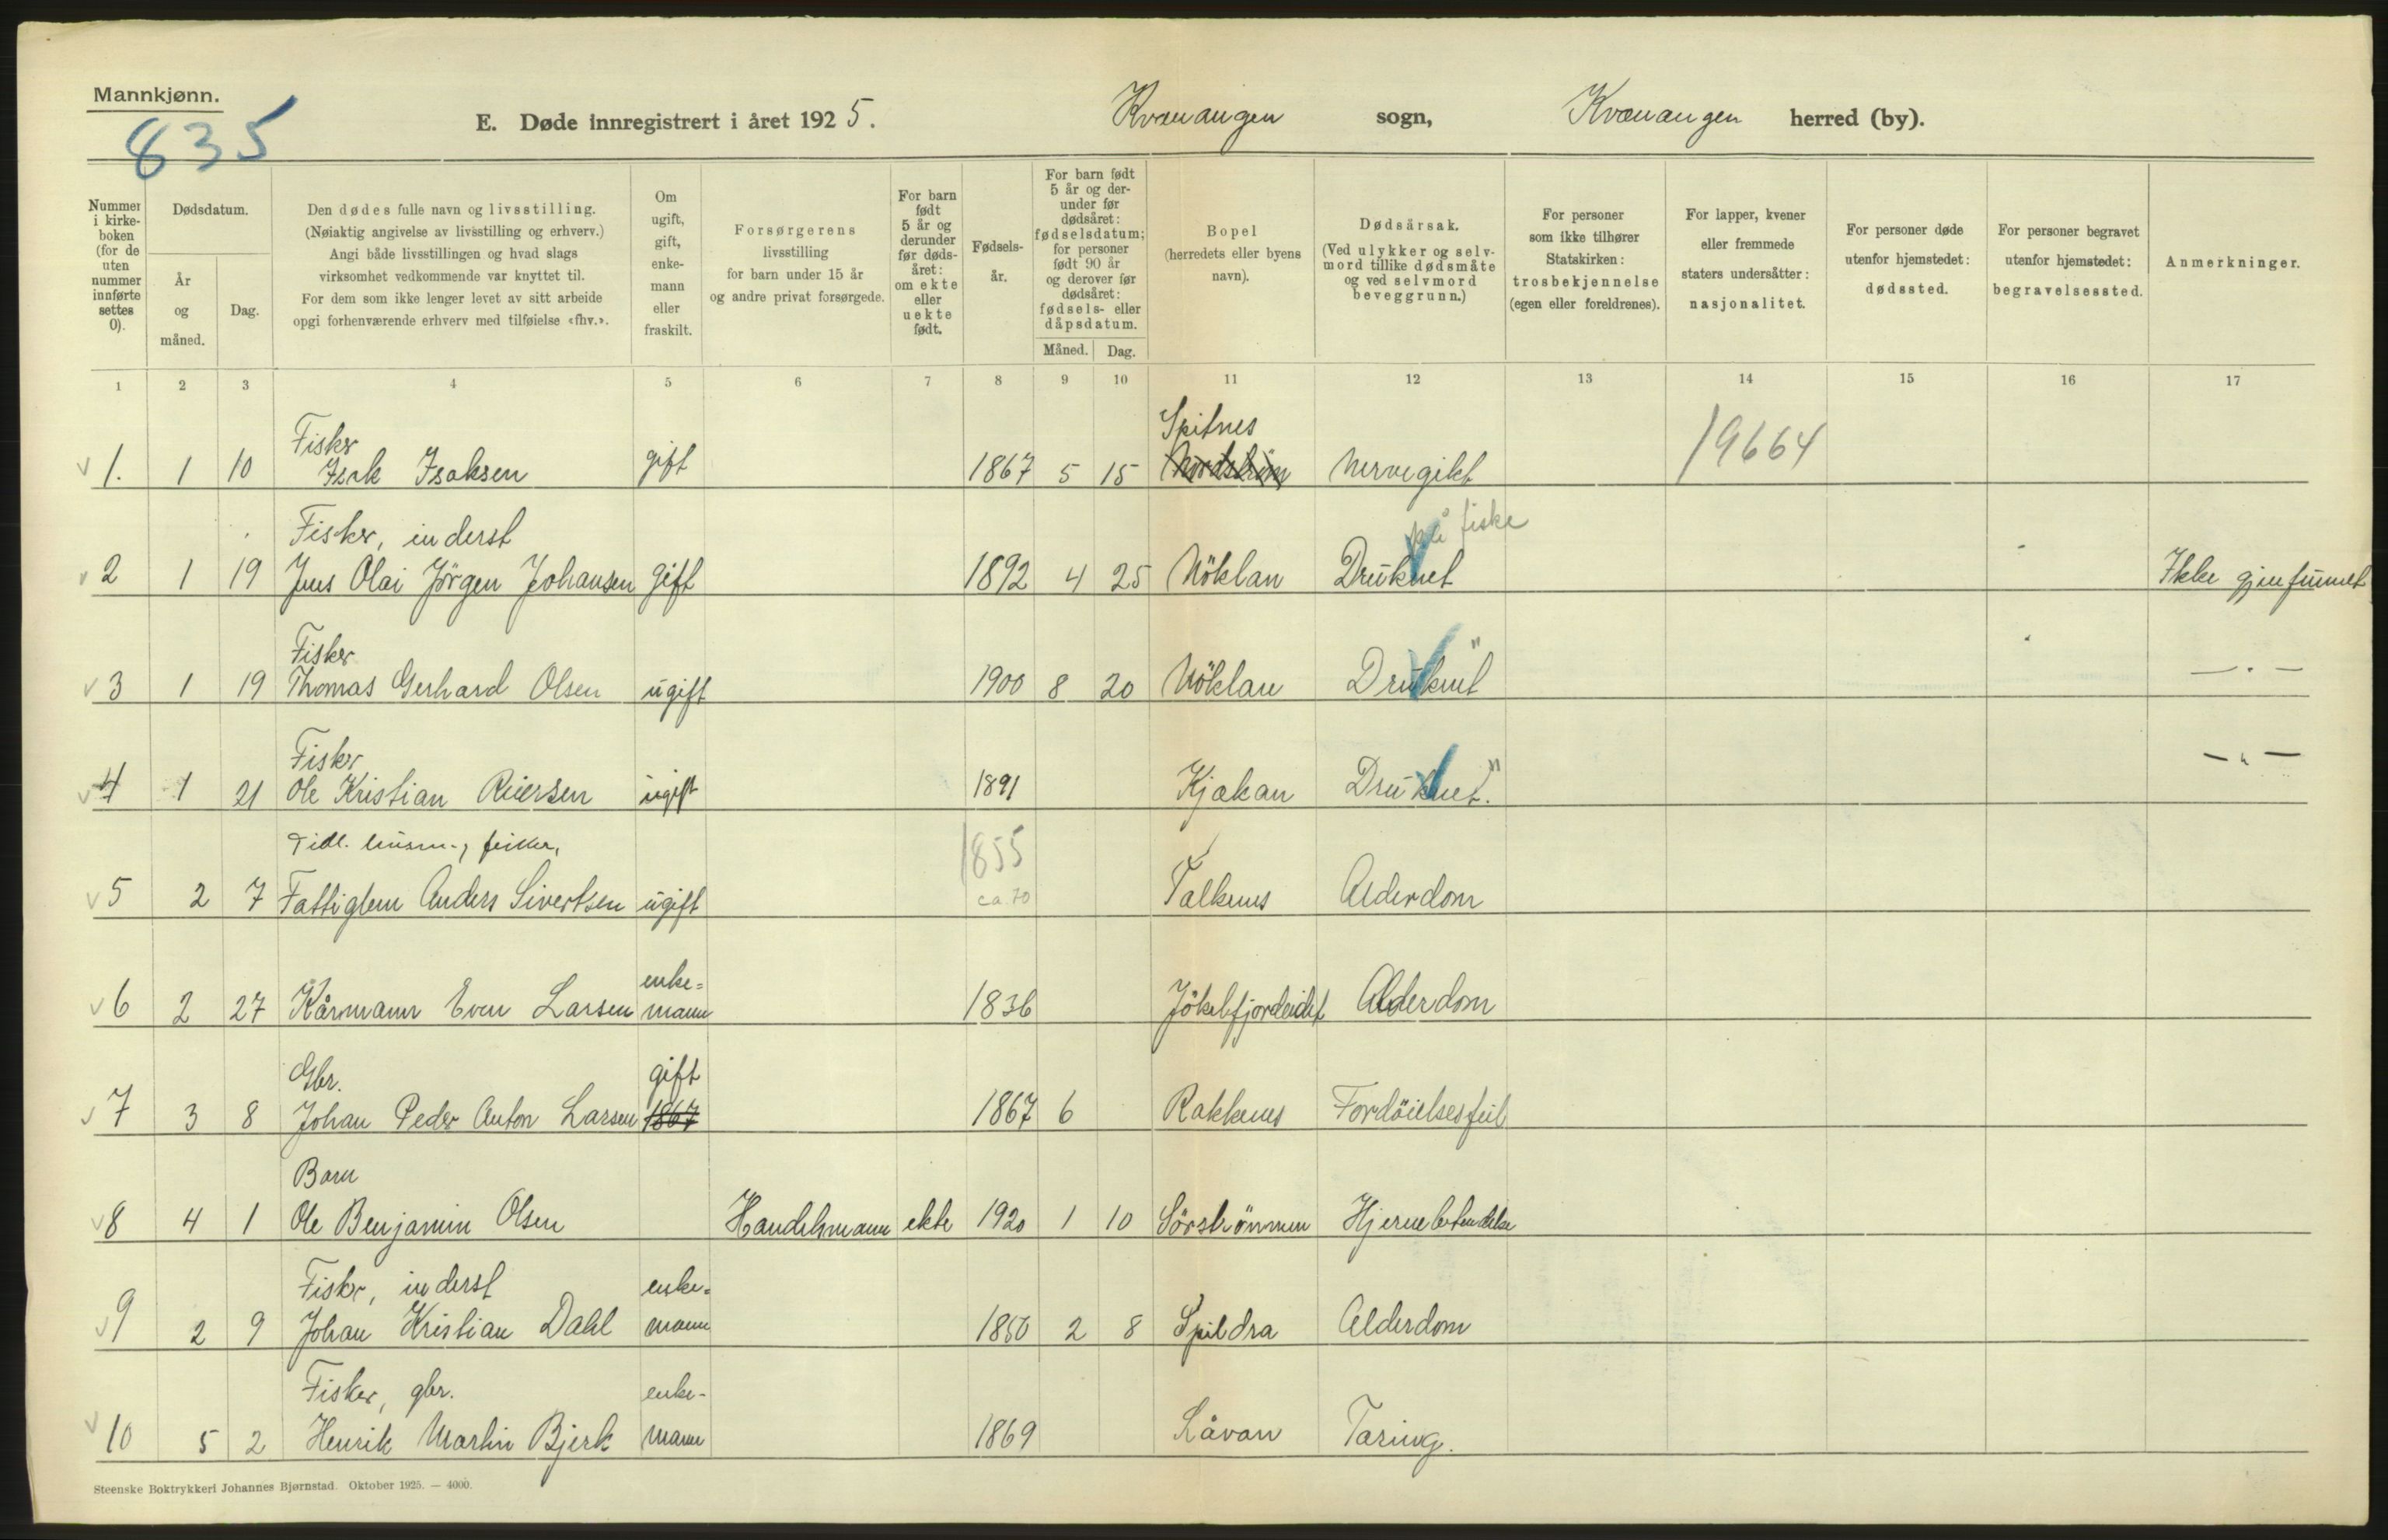 Mannkjønn.
835
E. Døde innregistrert i året 1925. Kvænangen sogn, Kvænangen herred (by).
Nummer i kirke-boken (for de uten nummer innførte settes 0).
Dødsdatum.
År og måned.
Dag.
Den dødes fulle navn og livsstilling.
(Nøiaktig angivelse av livsstilling og erhverv.)
Angi både livsstillingen og hvad slags
virksomhet vedkommende var knyttet til.
For dem som ikke lenger levet av sitt arbeide
opgi forhenværende erhverv med tilføielse «fhv.».
Om ugift, gift, enke-mann eller fraskilt.
Forsørgerens
livsstilling
for barn under 15 år
og andre privat forsørgede.
For barn født 5 år og derunder før døds-året: om ekte eller uekte født.
Fødsels-år.
For barn født 5 år og der-under før dødsåret: fødselsdatum; for personer født 90 år og derover før dødsåret: fødsels- eller dåpsdatum.
Måned. Dag.
Bopel
(herredets eller byens
navn).
Dødsårsak.
(Ved ulykker og selv-
mord tillike dødsmåte
og ved selvmord
beveggrunn.)
For personer
som ikke tilhører
Statskirken:
trosbekjennelse
(egen eller foreldrenes).
For lapper, kvener
eller fremmede
staters undersåtter:
nasjonalitet.
For personer døde
utenfor hjemstedet:
dødssted.
For personer begravet
utenfor hjemstedet:
begravelsessted.
Anmerkninger.
1 2 3 4 5 6 7 8 9 10 11 12 13 14 15 16 17
Fisker Spitnes
1. 1 10 Isak Isaksen gift 1867 5 15 Nordström Nervegikt 19664
Fisker, inderst på fiske
2 1 19 Jens Olai Jörgen Johansen gift 1892 4 25 Nöklan Druknet Ikke gjenfunnet
Fisker "
3 1 19 Thomas Gerhard Olsen ugift 1900 8 20 Nöklan Druknet — " —
Fisker "
4 1 21 Ole Kristian Reiersen ugift 1891 Kjækan Druknet. — " —
Tidl. husm., fisker, 1855
5 2 7 Fattiglem Anders Sivertsen ugift ca. 70 Valknes Alderdom
enke=
6 2 27 Kårmann Even Larsen mann 1836 Jökelfjordeidet Alderdom
Gbr. gift
7 3 8 Johan Peder Anton Larsen 1867 1867 6 Rakkenes Fordöielsesfeil
Barn
8 4 1 Ole Benjamin Olsen Handelsmann ekte 1920 1 10 Sörströmmen Hjernebetendelse
Fisker, inderst enke=
9 2 9 Johan Kristian Dahl mann 1850 2 8 Spildra Alderdom
Fisker, gbr. enke-
10 5 2 Henrik Martin Bjerk mann 1869 Låvan Tæring.
Steenske Boktrykkeri Johannes Bjørnstad. Oktober 1925. — 4000.